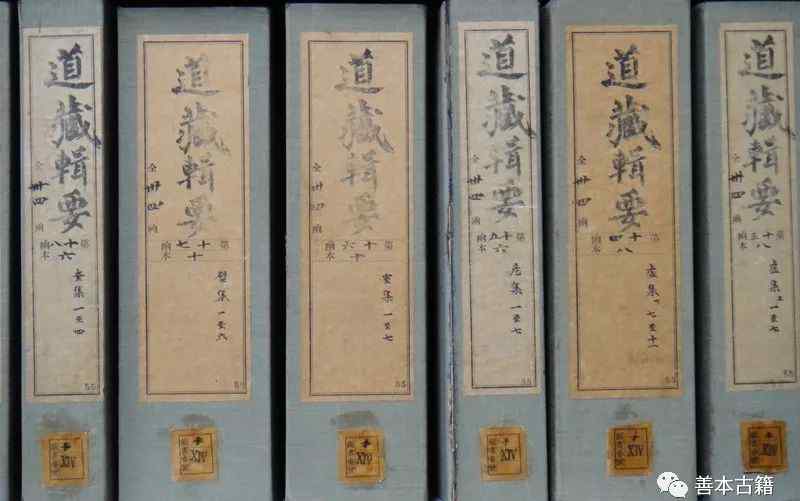 道藏輯要
全卅四函
第十八函六本
奎集 一至四
55
XIV
道藏輯要
全卅四函
第十七函十本
壁集 一至六
55
XIV
道藏輯要
全卅四函
第十六函十本
室集 一至七
55
XIV
道藏輯要
全卅四函
第十九函六本
集 一至七
55
XIV
道藏輯要
全卅四函
第十四函八本
虛集下 七至十一
55
XIV
道藏輯要
全卅四函
第十三函八本
虛集上 一至七
55
XIV
善本古籍